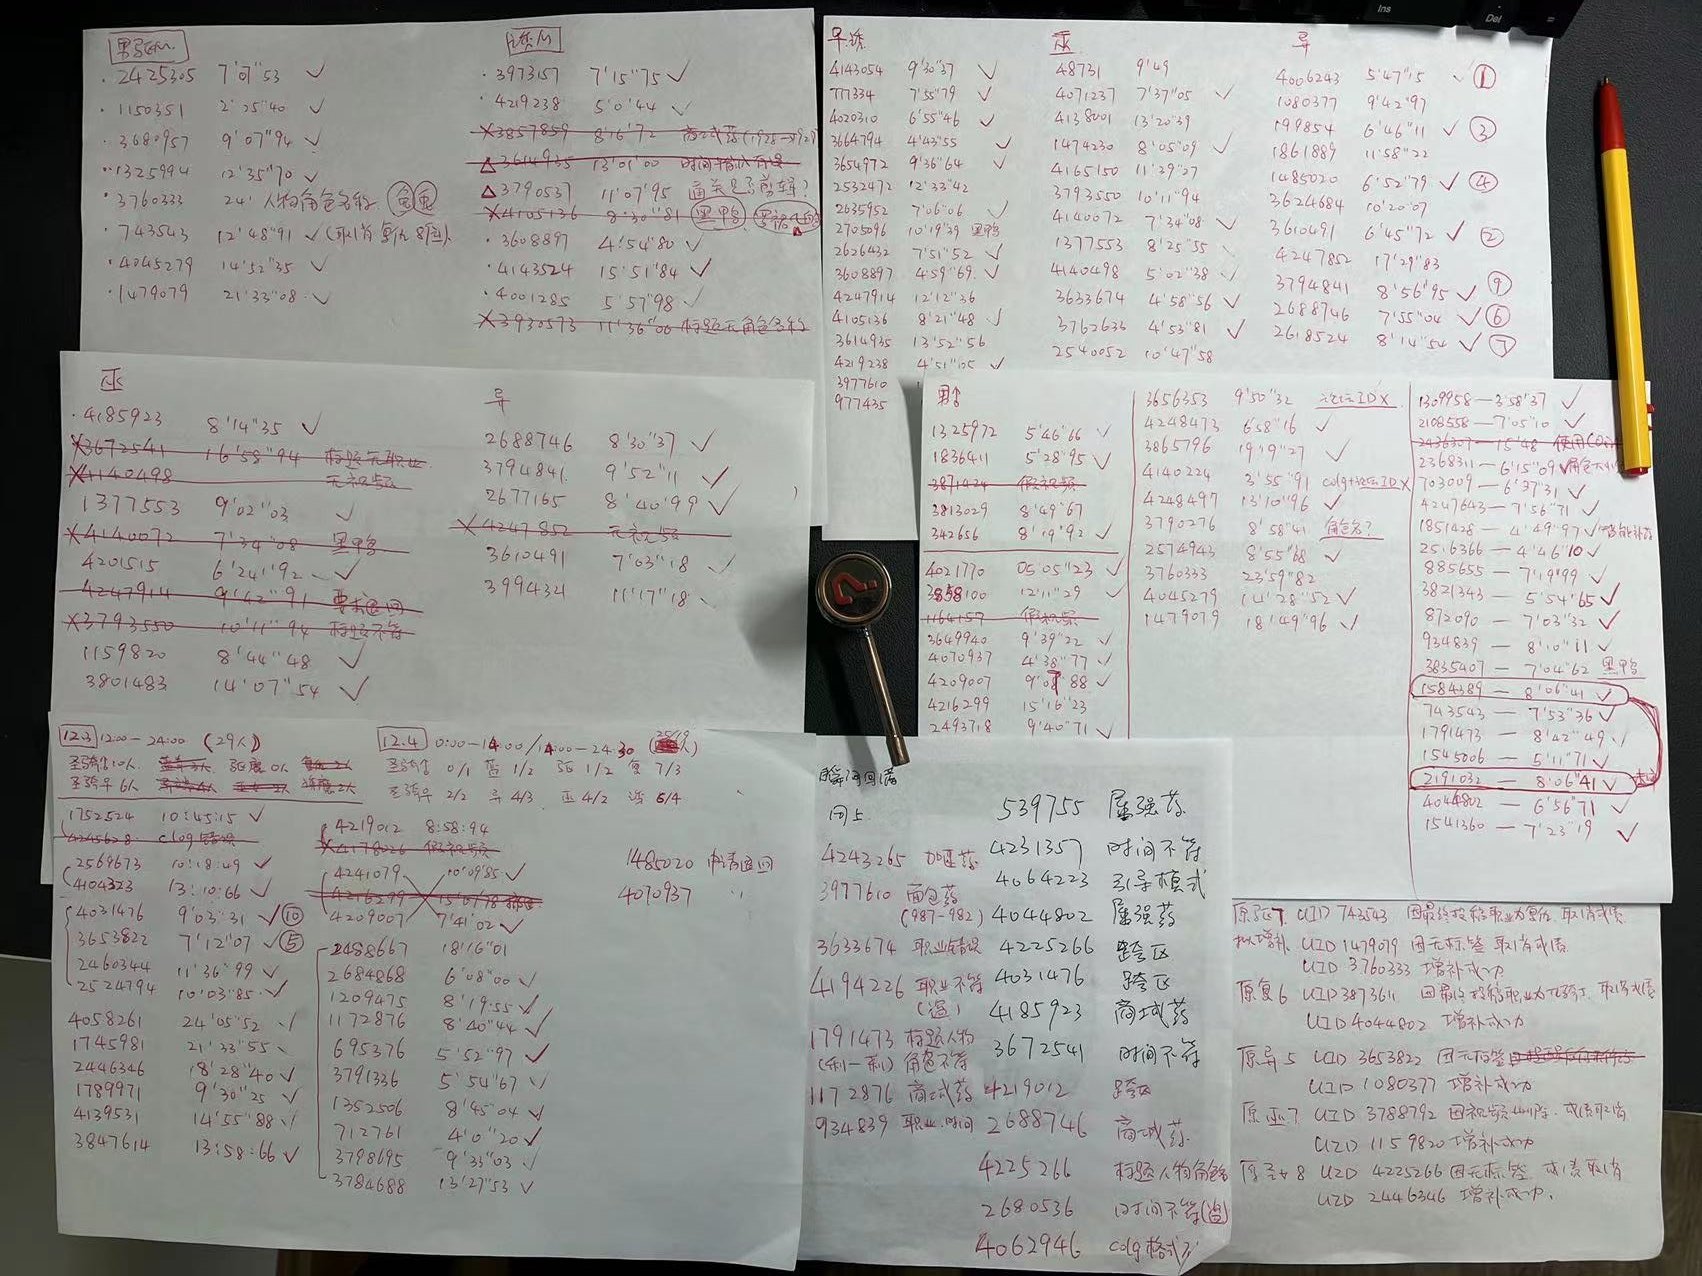 2425305 7'07"53 ✓
1150351 2'25"40 ✓
3680957 9'07"94 ✓
1325994 12'35"70 ✓
3760333 24' 人物角色名称
743543 12'48"91 ✓
4045279 14'52"35 ✓
1479079 21'33"08 ✓
3973157 7'15"75 ✓
4219238 5'0"44 ✓
X 3857859 8'16"72
△ 3614935 13'01"00
△ 3790537 11'07"95
X 4105136 8'30"81 黑鸭
3608897 4'54"80 ✓
4143524 15'51"84 ✓
4001285 5'57"98 ✓
X 3930573 11'36"00 标题无角色名称
4143054 9'30"37 ✓
777334 7'55"79 ✓
4020310 6'55"46 ✓
3664794 4'43"55 ✓
3654972 9'36"64 ✓
2532472 12'33"42
2635952 7'06"06 ✓
2705096 10'19"39 黑鸭
2626432 7'51"52 ✓
3608897 4'59"69 ✓
4247914 12'12"36
4105136 8'21"48 ✓
3614935 13'52"56
4219238 4'51"05 ✓
3977610
977435
巫
48731 9'49
4071237 7'37"05 ✓
4138001 13'20"39
1474230 8'05"09 ✓
4165150 11'29"27
3793550 10'11"94
4140072 7'34"08 ✓
1377553 8'25"55 ✓
4140498 5'02"38 ✓
3633674 4'58"56 ✓
3762633 4'53"81 ✓
2540052 10'47"58
异
4006243 5'47"15 ✓ ①
1080377 9'42"97
199854 6'46"11 ✓ ③
1861889 11'58"22
1485020 6'52"79 ✓ ④
3624684 10'20"07
3610491 6'45"72 ✓ ②
4247852 17'29"83
3794841 8'56"95 ✓ ⑨
2688746 7'55"04 ✓ ⑥
2618524 8'14"54 ✓ ⑦
巫
4185923 8'14"35 ✓
X 3672541 16'58"94 标题无职业
X 4140498 无视频
1377553 9'02"03 ✓
X 4140072 7'34"08 黑鸭
4201515 6'24"92 ✓
4247914 9'42"91 要求退回
X 3793550 10'11"94 标题不符
1159820 8'44"48 ✓
3801483 14'07"54 ✓
异
2688746 8'30"37 ✓
3794841 9'52"11 ✓
2677165 8'40"99 ✓
X 4247852 无视频
3610491 7'03"18 ✓
3994321 11'17"18
1325972 5'46"66 ✓
1836411 5'28"95 ✓
3871424 假视频
3813029 8'49"67
342656 8'19"92 ✓
4021770 05'05"23 ✓
3858100 12'11"29 ✓
1164157 假视频
3649940 9'39"22 ✓
4070937 4'38"77 ✓
4209007 9'07"88 ✓
4216299 15'16"23
2493718 9'40"71 ✓
3656353 9'50"32 论坛ID X
4248473 6'58"16 ✓
3865796 19'19"27 ✓
4140224 3'55"91 colg+论坛ID X
4248497 13'10"96 ✓
3790276 8'58"41 角色名?
2574943 8'55"68 ✓
3760333 23'59"82
4045279 14'28"52 ✓
1479079 18'49"96 ✓
1309958 — 3'58"37 ✓
2108558 — 7'05"10 ✓
2436307 — 15'48
2368311 — 6'15"09 ✓
703009 — 6'37"31 ✓
4247643 — 7'56"71 ✓
1851428 — 4'49"97 ✓
2516366 — 4'46"10 ✓
885655 — 7'19"99 ✓
3821343 — 5'54"65 ✓
872090 — 7'03"32 ✓
934839 — 8'10"11 ✓
3835407 — 7'04"62 黑鸭
1584389 — 8'06"41 ✓
743543 — 7'53"36 ✓
1791473 — 8'42"49 ✓
1545006 — 5'11"71 ✓
2191032 — 8'06"41 ✓
4044802 — 6'56"71 ✓
1541360 — 7'23"19 ✓
12.3 12:00-24:00 (29人)
12.4 0:00-14:00/14:00-24:30
1752524 10:45:15 ✓
4245628 clog 错误
2569673 10:18:49 ✓
4104323 13:10:66 ✓
4031476 9'03"31 ✓ ⑩
3653822 7'12"07 ✓ ⑤
2460344 11'36"99 ✓
2524794 10'03"85 ✓
4058261 24'05"52 ✓
1745981 21'33"55
2446346 18'28"40 ✓
1789971 9'30"25 ✓
4139531 14'55"88 ✓
3847614 13:58:66 ✓
4219012 8:58:94
X 4178026 假视频
4241079 10'09"85 ✓
4216299
4209007 7'41"02 ✓
2488667 18'16"01
2684868 6'08"00 ✓
1209475 8'19"55 ✓
1172876 8'40"44 ✓
695376 5'52"97 ✓
3791336 5'54"67 ✓
1352506 8'45"04 ✓
712761 4'0"20 ✓
3798695 9'33"03 ✓
3784688 13'27"53 ✓
1485020 申请退回
4070937 "
4243265
3977610 面包药
(987-982)
3633674 职业错误
4194226 职业不符
1791473 标题人物
角色不符
1172876 商城药
934839 职业.时间
539755 屠强药
4231357 时间不符
4064223 引导模式
4044802 屠强药
4225266 跨区
4031476 跨区
4185923 商城药
3672541 时间不符
4219012 跨区
2688746 商城药
4225266 标题人物角色
2680536 时间不符
4062946 colg格式
UID 743543 因最终投稿职业为复仇 取消成绩
UID 1479079 因无标签 取消成绩
UID 3760333 增补成功
原复6 UID 3873611
UID 4044802 增补成功
原异5 UID 3653822 因无标签
UID 1080377 增补成功
原巫7 UID 3788792 因视频删除. 成绩取消
UID 1159820 增补成功
UID 4225266 因无标签 成绩取消
UID 2446346 增补成功.
Ins
Del